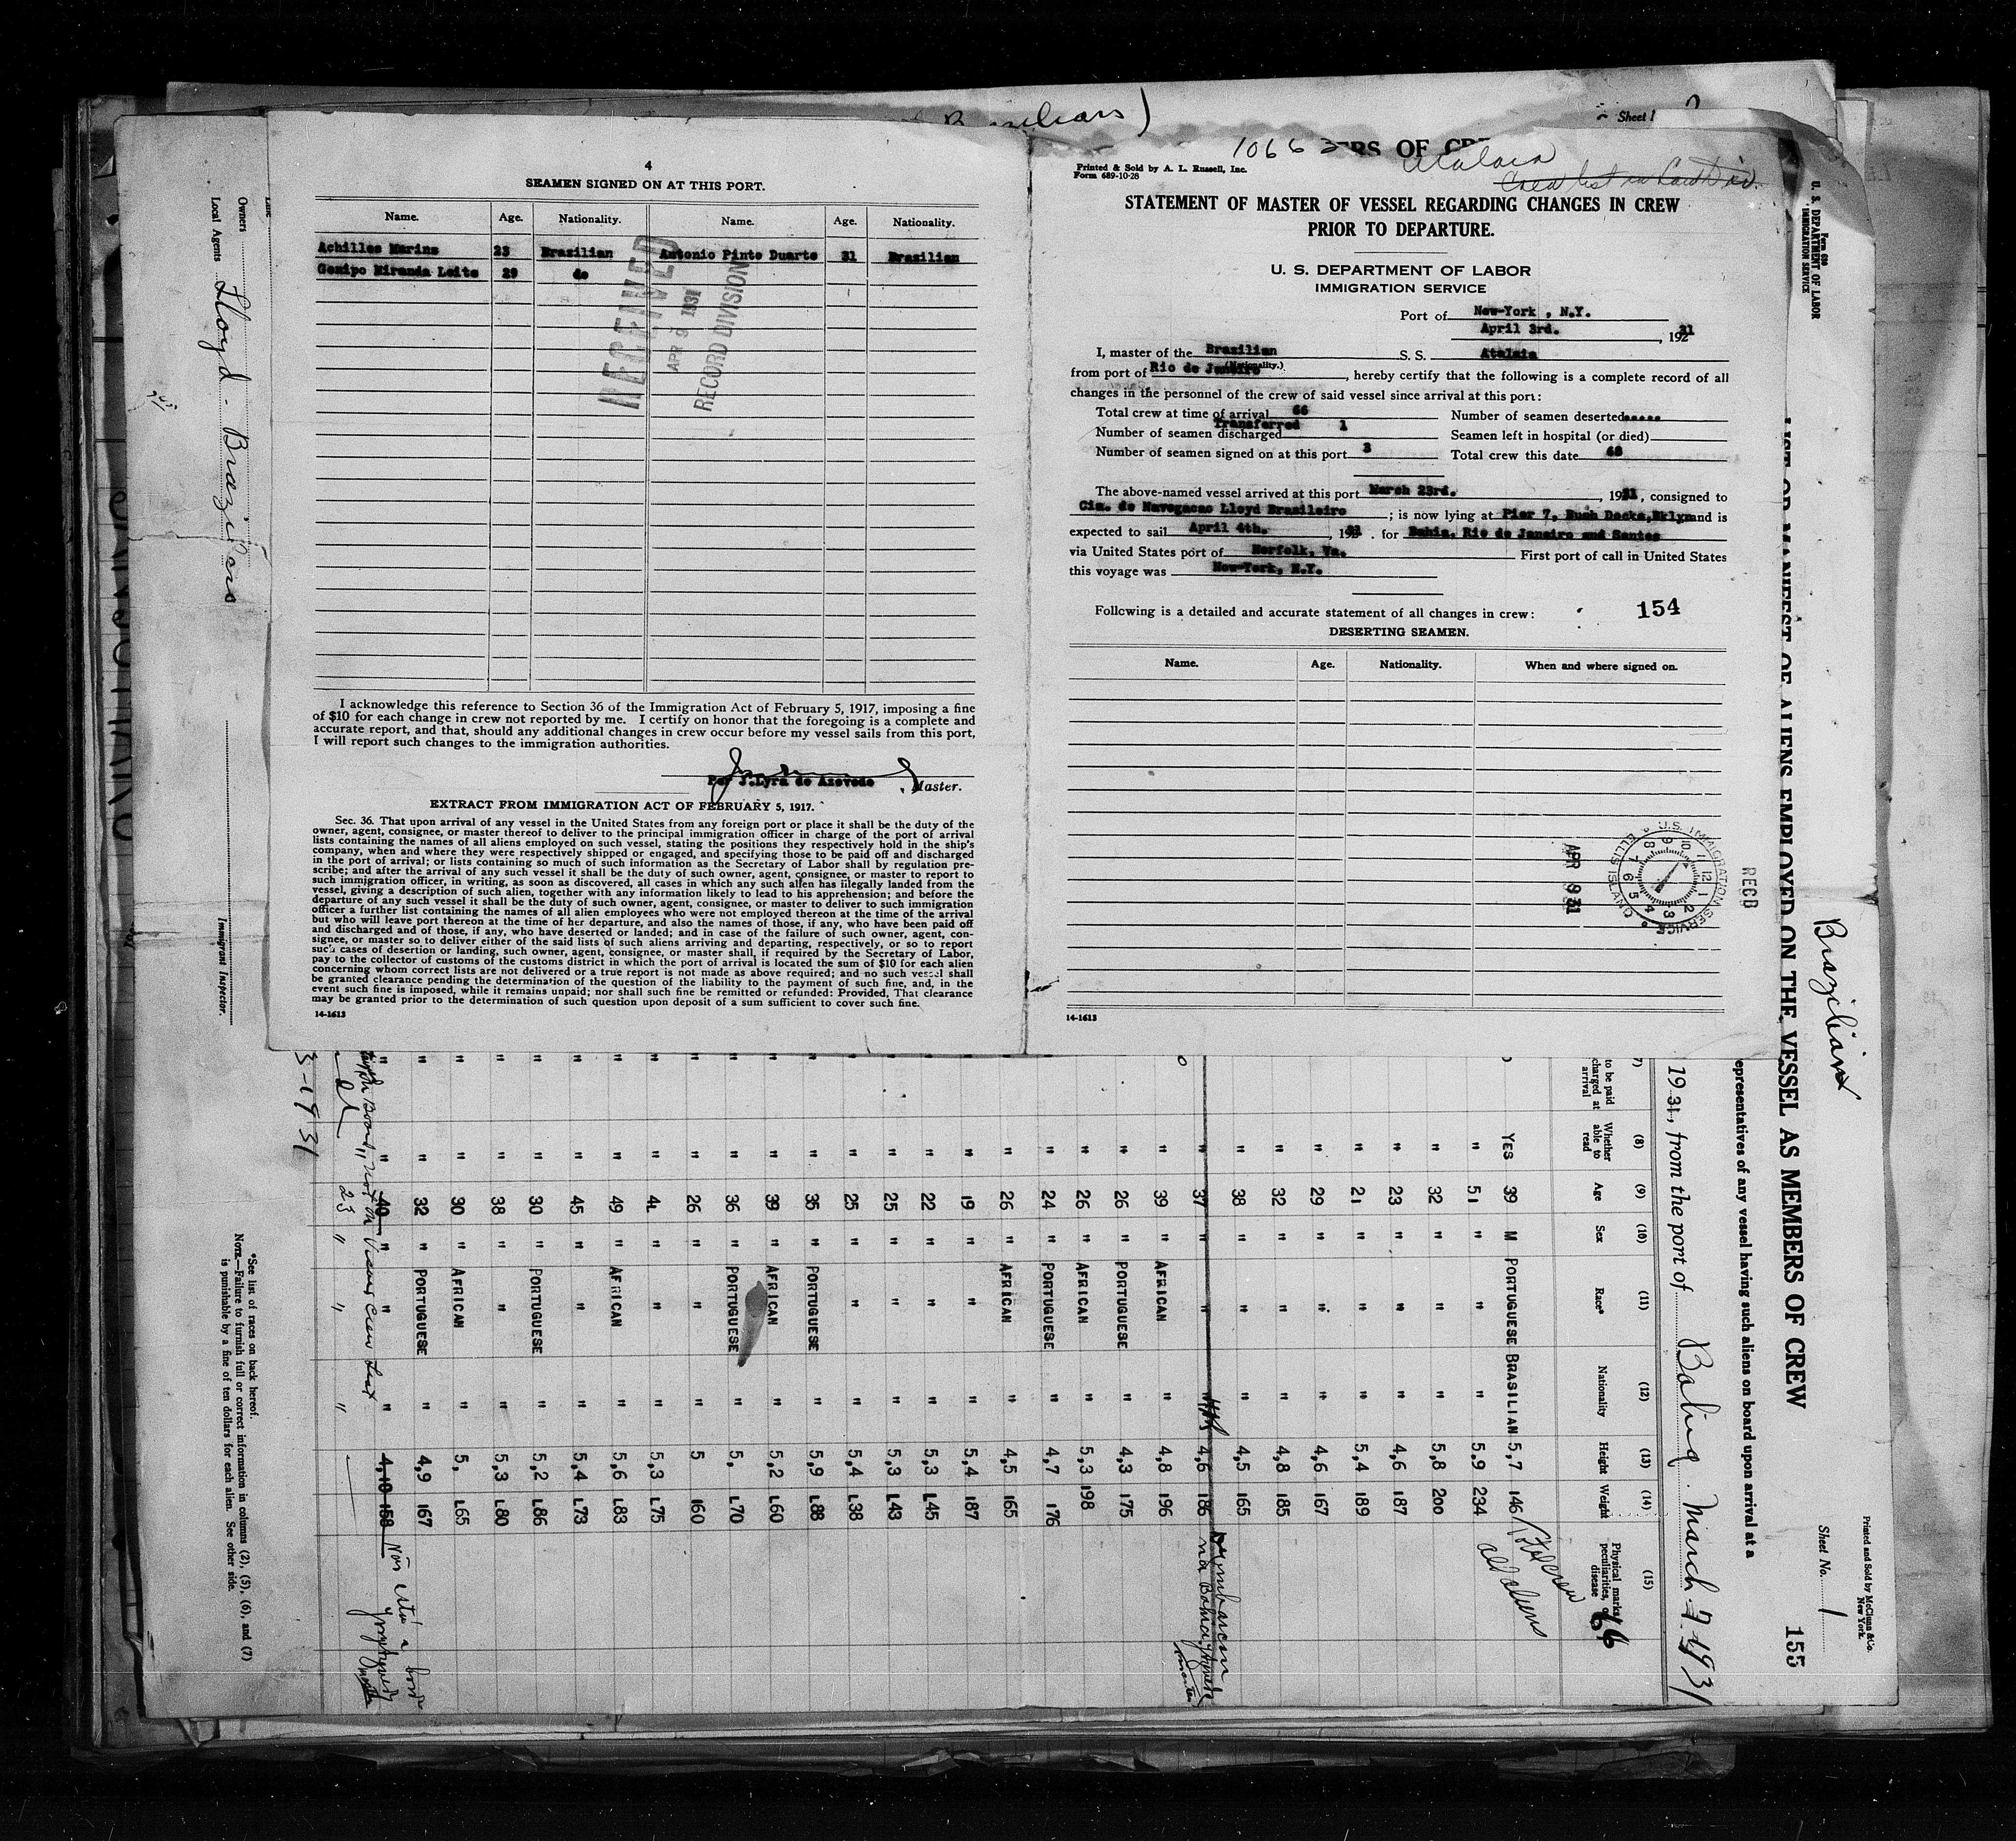 4
SEAMEN SIGNED ON AT THIS PORT.
Name. Age. Nationality. Name. Age. Nationality.
Achilles Marins 23 Brazilian Antonio Pinto Duarte 31 Brazilian
Genipo Miranda Leite 29 do
RECEIVED
APR 9 1931
RECORD DIVISION
I acknowledge this reference to Section 36 of the Immigration Act of February 5, 1917, imposing a fine
of $10 for each change in crew not reported by me. I certify on honor that the foregoing is a complete and
accurate report, and that, should any additional changes in crew occur before my vessel sails from this port,
I will report such changes to the immigration authorities.
Per J.Lyra de Azevedo
, Master.
EXTRACT FROM IMMIGRATION ACT OF FEBRUARY 5, 1917.
Sec. 36. That upon arrival of any vessel in the United States from any foreign port or place it shall be the duty of the
owner, agent, consignee, or master thereof to deliver to the principal immigration officer in charge of the port of arrival
lists containing the names of all aliens employed on such vessel, stating the positions they respectively hold in the ship's
company, when and where they were respectively shipped or engaged, and specifying those to be paid off and discharged
in the port of arrival; or lists containing so much of such information as the Secretary of Labor shall by regulation pre-
scribe; and after the arrival of any such vessel it shall be the duty of such owner, agent, consignee, or master to report to
such immigration officer, in writing, as soon as discovered, all cases in which any such alien has illegally landed from the
vessel, giving a description of such alien, together with any information likely to lead to his apprehension; and before the
departure of any such vessel it shall be the duty of such owner, agent, consignee, or master to deliver to such immigration
officer a further list containing the names of all alien employees who were not employed thereon at the time of the arrival
but who will leave port thereon at the time of her departure, and also the names of those, if any, who have been paid off
and discharged and of those, if any, who have deserted or landed; and in case of the failure of such owner, agent, con-
signee, or master so to deliver either of the said lists of such aliens arriving and departing, respectively, or so to report
such cases of desertion or landing, such owner, agent, consignee, or master shall, if required by the Secretary of Labor,
pay to the collector of customs of the customs district in which the port of arrival is located the sum of $10 for each alien
concerning whom correct lists are not delivered or a true report is not made as above required; and no such vessel shall
be granted clearance pending the determination of the question of the liability to the payment of such fine, and, in the
event such fine is imposed, while it remains unpaid; nor shall such fine be remitted or refunded: Provided, That clearance
may be granted prior to the determination of such question upon deposit of a sum sufficient to cover such fine.
14-1613
Sheet 1
10663
Atalaia
Printed & Sold by A. L. Russell, Inc.
Form 689-10-28
STATEMENT OF MASTER OF VESSEL REGARDING CHANGES IN CREW
PRIOR TO DEPARTURE.
U. S. DEPARTMENT OF LABOR
IMMIGRATION SERVICE
Port of New-York , N.Y.
April 3rd. , 1931
I, master of the Brazilian S. S. Atalaia
(Nationality.)
from port of Rio de Janeiro , hereby certify that the following is a complete record of all
changes in the personnel of the crew of said vessel since arrival at this port:
Total crew at time of arrival 66 Number of seamen deserted
Transferred 1
Number of seamen discharged Seamen left in hospital (or died)
Number of seamen signed on at this port 3 Total crew this date 68
The above-named vessel arrived at this port March 23rd. , 1931, consigned to
Cia. de Navegacao Lloyd Brasileiro ; is now lying at Pier 7, Bush Docks,Bklyn and is
expected to sail April 4th. , 1931 . for Bahia, Rio de Janeiro and Santos
via United States port of Norfolk, Va. First port of call in United States
this voyage was New-York, N.Y.
Following is a detailed and accurate statement of all changes in crew: 154
DESERTING SEAMEN.
Name. Age. Nationality. When and where signed on.
U.S. IMMIGRATION SERVICE
ELLIS ISLAND
APR 9 31
REC'D
14-1613
Owners
Local Agents Lloyd-Braziliero
Immigrant Inspector.
Form 689
U. S. DEPARTMENT OF LABOR
IMMIGRATION SERVICE
Printed and Sold by McClunn & Co.
New York.
Sheet No. 1
155
Brazilian
LIST OR MANIFEST OF ALIENS EMPLOYED ON THE VESSEL AS MEMBERS OF CREW
epresentatives of any vessel having such aliens on board upon arrival at a
1931, from the port of Bahia. March 7 1931
(7) (8) (9) (10) (11) (12) (13) (14) (15)
to be paid charged at arrival Whether able to read Age Sex Race* Nationality Height Weight Physical marks, peculiarities, or disease
66
YES 39 M PORTUGUESE BRASILIAN 5,7 146
" 51 " " " 5,9 234
" 32 " " " 5,8 200
" 23 " " " 4,6 187
" 21 " " " 5,4 189
" 29 " " " 4,6 167
" 32 " " " 4,8 185
" 38 " " " 4,5 165
" 37 " " " 4,6 186
" 39 " AFRICAN " 4,8 196
" 26 " PORTUGUESE " 4,3 175
" 26 " AFRICAN " 5,3 198
" 24 " PORTUGUESE " 4,7 176
" 26 " AFRICAN " 4,5 165
" 19 " " " 5,4 187
" 22 " " " 5,3 145
" 25 " " " 5,3 143
" 25 " " " 5,4 138
" 35 " PORTUGUESE " 5,9 188
" 39 " AFRICAN " 5,2 160
" 36 " PORTUGUESE " 5, 170
" 26 " " " 5 160
" 4L " " " 5,3 175
" 49 " AFRICAN " 5,6 183
" 45 " " " 5,4 173
" 30 " PORTUGUESE " 5,2 186
" 38 " " " 5,3 180
" 30 " AFRICAN " 5, 165
" 32 " PORTUGUESE " 4,9 167
" 40 " " " 4,10 158
23 " " "
*See list of races on back hereof.
NOTE.—Failure to furnish full or correct information in columns (2), (5), (6), and (7)
is punishable by a fine of ten dollars for each alien. See other side.